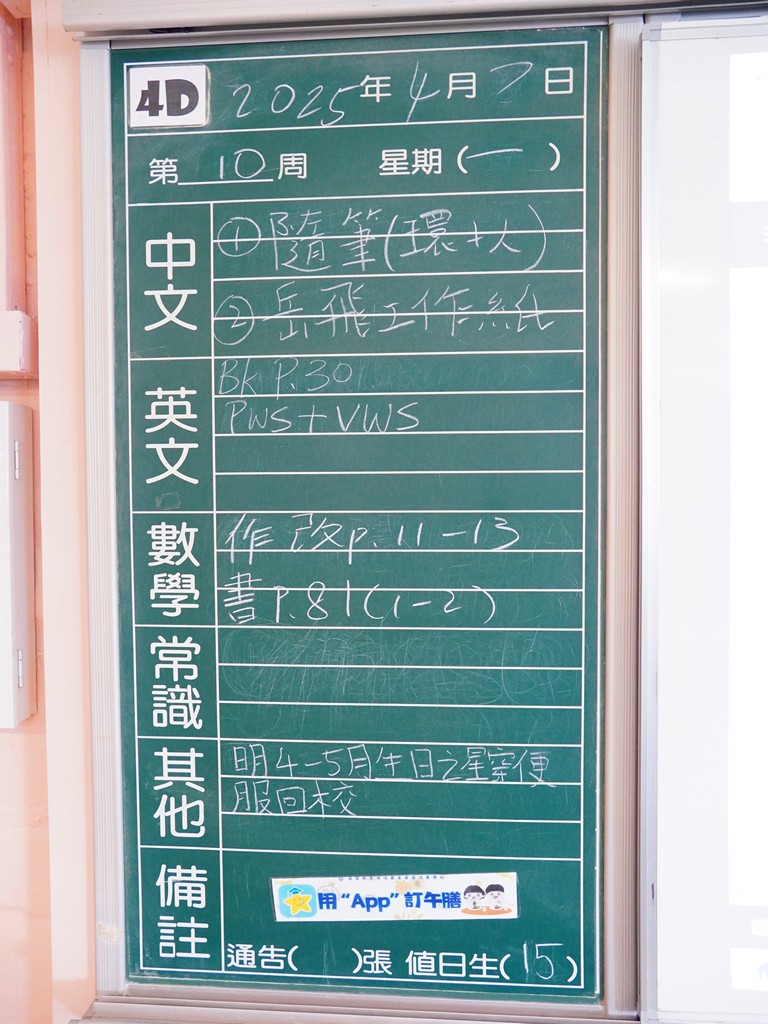 4D 2025年4月7日
第10周 星期(一)
中文
①隨筆(環+人)
②岳飛工作紙
英文
Bk P.30
PWS+VWS
數學
作改p.11-13
書P.81(1-2)
常識
其他
明4-5月生日之星穿便
服回校
備註
用“App”訂午膳
通告( )張 值日生(15)